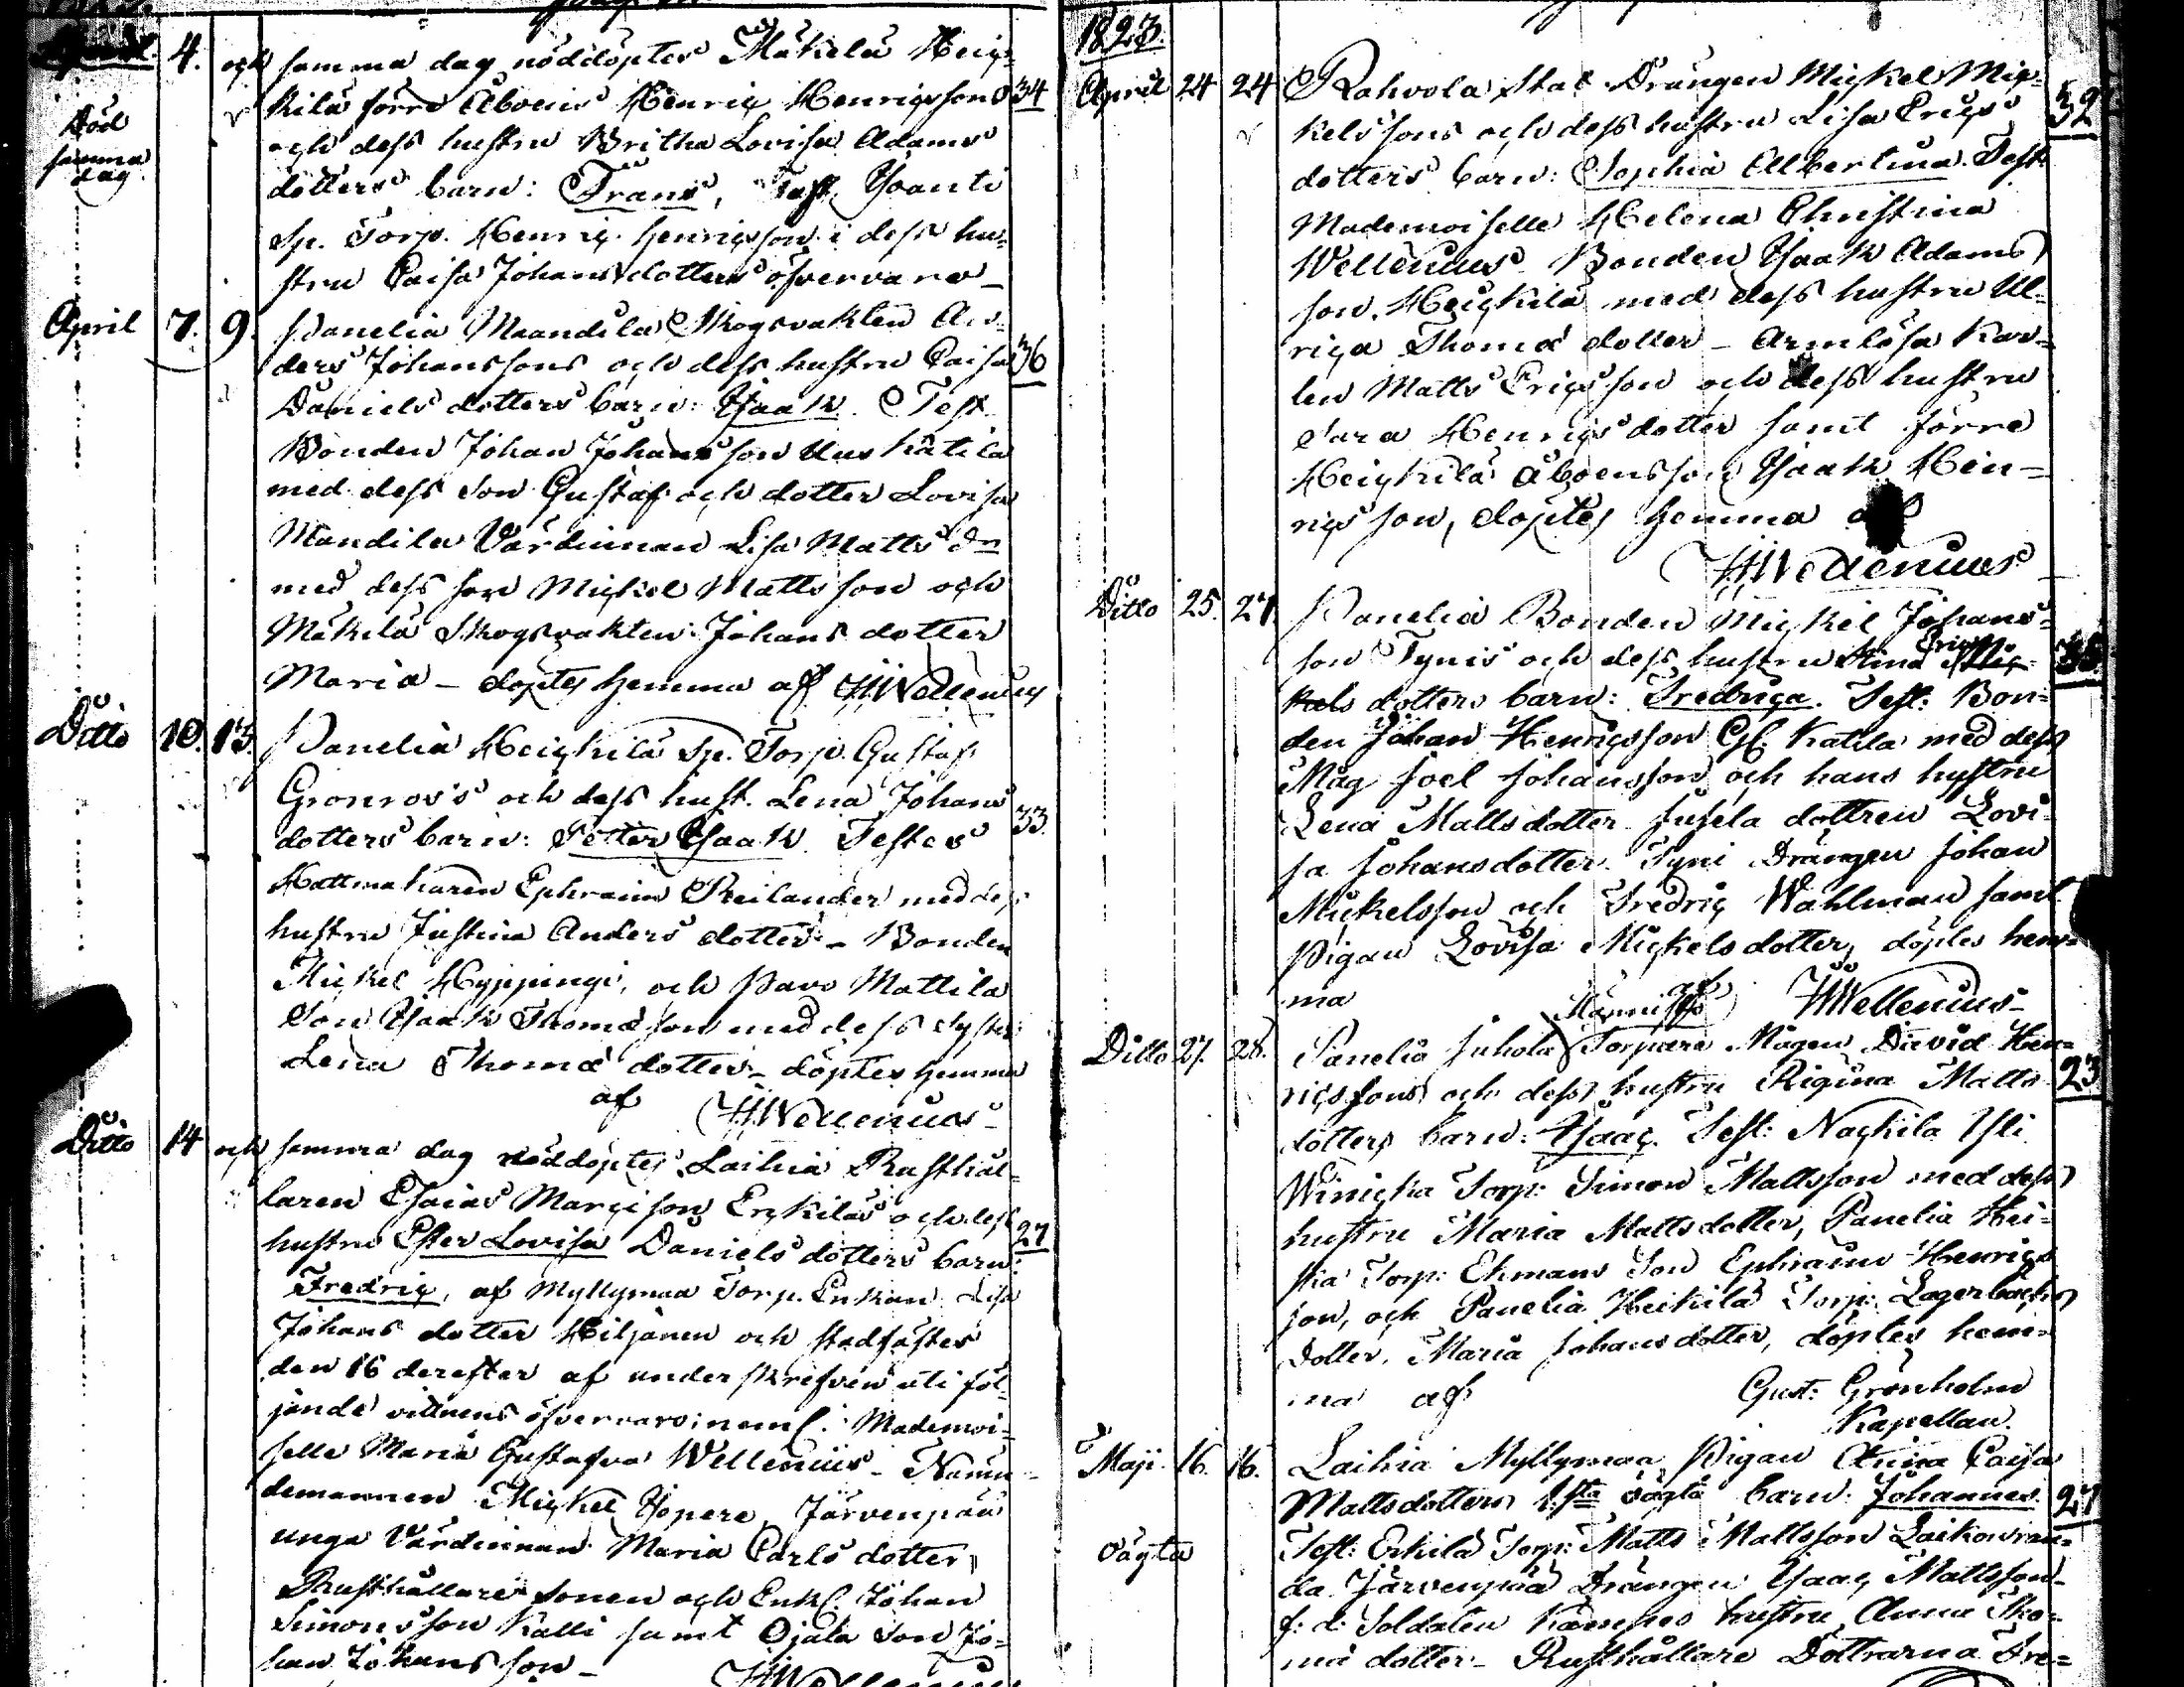 4. och samma dag nöddöptes Mäkelä Heic-
kilä förre Åboens Henric Henricssons 34
Död samma dag.
och dess hustru Britha Lovisa Adams
dotters barn: Frans, Test. Yoanti
Sp. Torp. Henric Henricsson i dess hu-
stru Caisa Johansdotters öfvervaro _
April 7. 9. Panelia Maandila Skogsvakten An-
ders Johanssons och dess hustru Caisa 36
Daniels dotters barn: Isaak. Test.
Bonden Johan Johansson Uus Katila
med dess Son Gustaf och dotter Lovisa
Mandila Värdinnan Lisa Matts dr
med dess son Michel Mattsson och
Mäkilä Skogsvakten Johans dotter
Maria _ döptes hemma af HWellenius
Ditto 10. 13. Panelia Heickilä Sp. Torp. Gustaf
Gronros's och dess hust. Lena Johans
dotters barn: Petter Isaak. Testes 33.
Hattmakaren Ephraim Reilander med dess
hustru Justina Anders dotter _ Bonden
Mickel Hyppingi, och Pavo Mattila
Son Isaak Thomæson med dess syster
Lena Thomæ dotter _ döptes hemma
af HWellenius
Ditto 14 och samma dag nöddöptes Laihia Rusthål-
laren Esaias Marcisson Erkiläs och dess
hustru Ester Lovisa Daniels dotters barn: 27
Fredric, af Myllymaa Torp. Enkan Lisa
Johans dotter Hiljanen och stadfästes
den 16 derefter af underskrefven uti föl-
jande vittnens öfvervaro; neml. Mademoi-
selle Maria Gustafva Wellenius _ Nämn-
demannen Mickel Yopere, Järvenpää
unga Värdinnan Maria Carls dotter
Rusthållare sonen och Enkl. Johan
Simonsson Kalli samt Ojala Son Jo-
han Johansson _
HWellenius
1823.
April 24 24 Rahvola Stat Drängen Mickel Mic-
kelssons och dess hustru Lisa Erics 32
dotters barn: Sophia Albertina. Test.
Mademoiselle Helena Christina
Wellenius Bonden Isaak Adams
son Heickilä med dess hustru Ul-
rica Thomæ dotter _ Armlösa Kar-
len Matts Ericsson och dess hustru
Sara Henrics dotter samt förre
Heickilä Åboens son Isaak Hen-
ricsson, döptes hemma af
HWellenius
Ditto 25. 27. Panelia Bonden Mickel Johans-
son Tynis och dess hustru Stina Erics Mic-
kels dotters barn: Fredrica. Test: Bon-
den Johan Henricsson Gl. Katila med dess
Måg Joel Johansson och hans hustru
Lena Mattsdotter Jusela dottren Lovi-
sa Johansdotter. Tyni Drängen Johan
Mickelsson och Fredric Wahlman samt
Pigan Lovisa Mickelsdotter, döptes hem-
ma af HWellenius _
Ditto 27. 28. Panelia Juhola Torpare Mågen David Hen-
ricssons och dess hustru Rigina Matts 23
dotters barn: Isaac. Test: Nackila Yli
Winicka Torp: Simon Mattsson med dess
hustru Maria Mattsdotter, Panelia Hei-
Torp: Ekmans Son Ephraim Henrics
son, och Panelia Heikilä Torp: Lagerbäcks
Dotter, Maria Johansdotter, döptes hem-
ma af Gust: Grönholm
Kapellan.
Maji 16. 16. Laihia Myllymaa Pigan Anna Caisa
Mattsdotters 1.sta oägta barn: Johannes. 27
oägta
Test: Erkilä Torp: Matts Mattsson Laikonran-
da Järvenpää Drängen Isaac Mattsson _
f: d: Soldaten Kämpes hustru Anna Tho-
mæ dotter _ Rusthållare Döttrarna Fre-